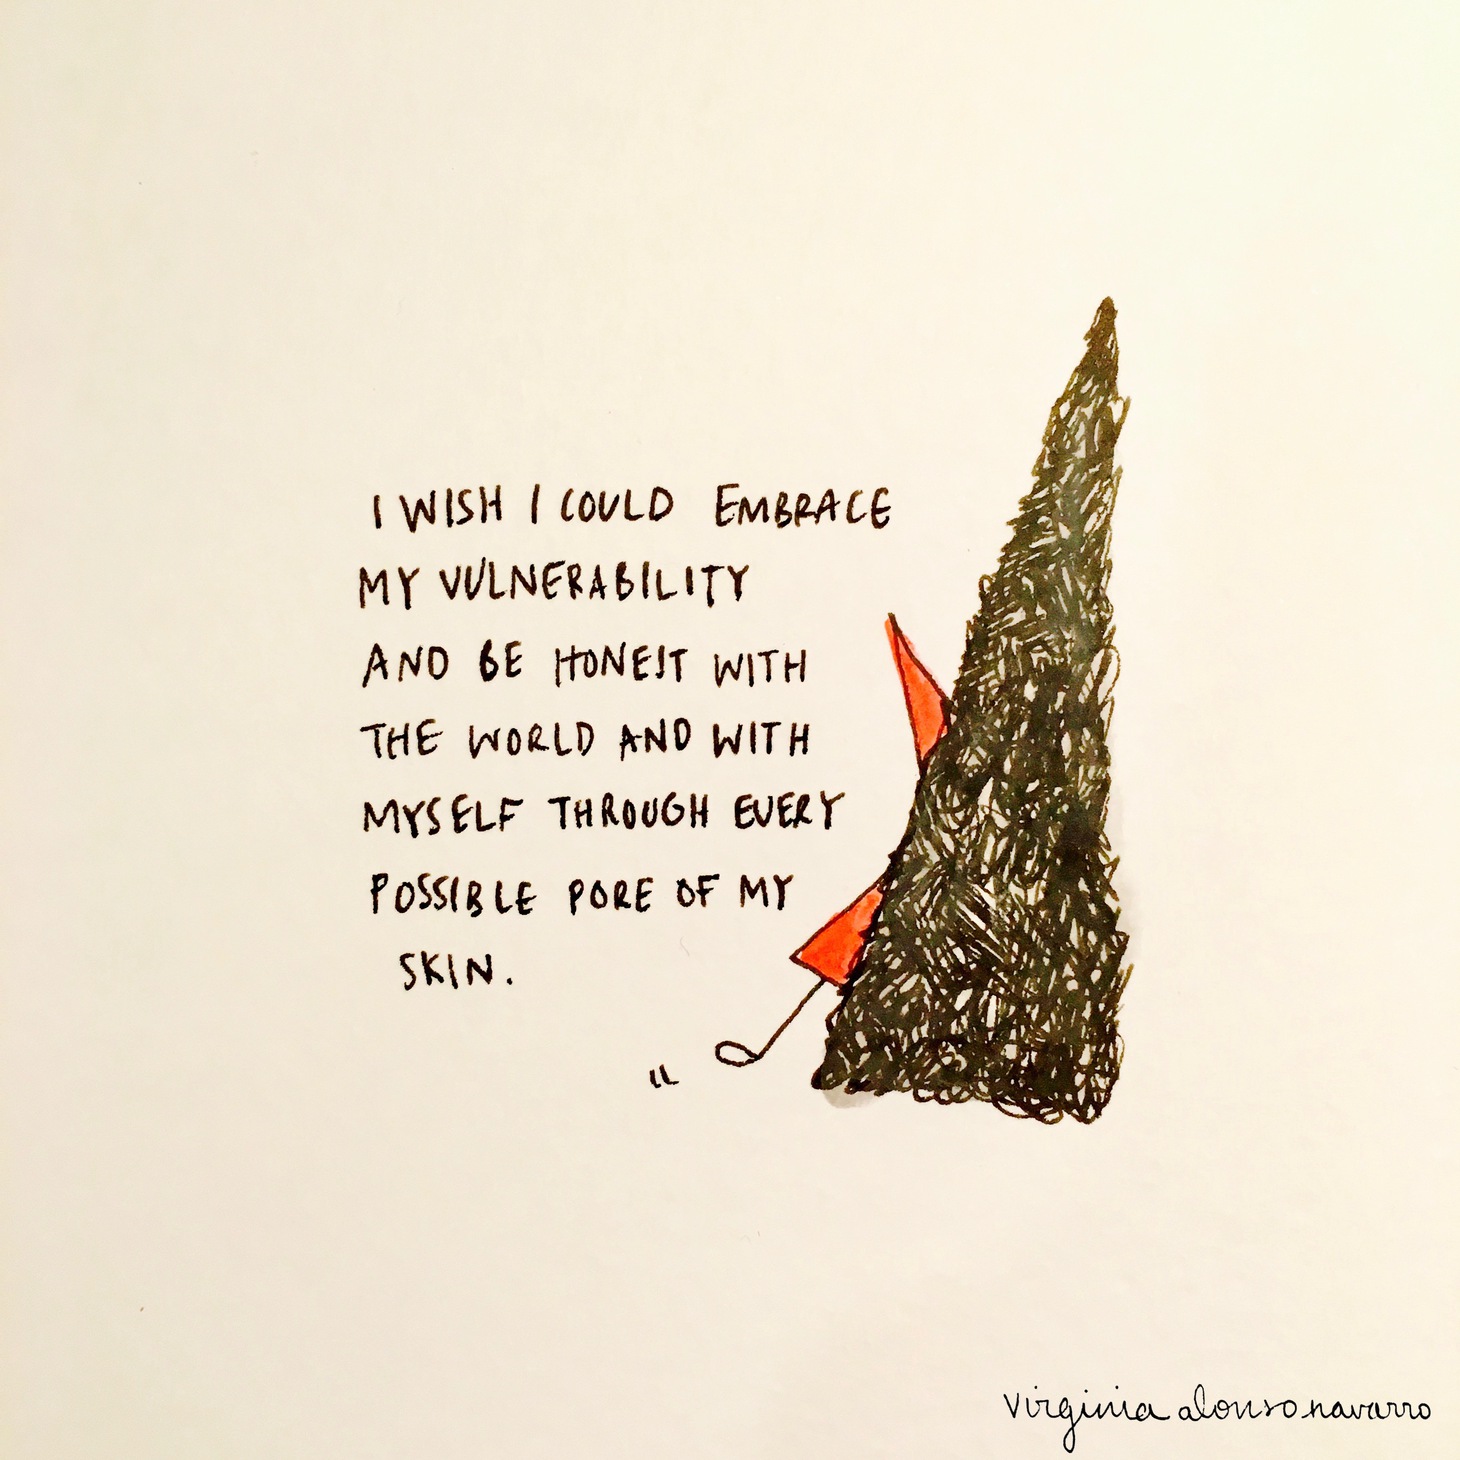 I WISH I COULD EMBRACE
MY VULNERABILITY
AND BE HONEST WITH
THE WORLD AND WITH
MYSELF THROUGH EVERY
POSSIBLE PORE OF MY
SKIN.
virginia alonso navarro